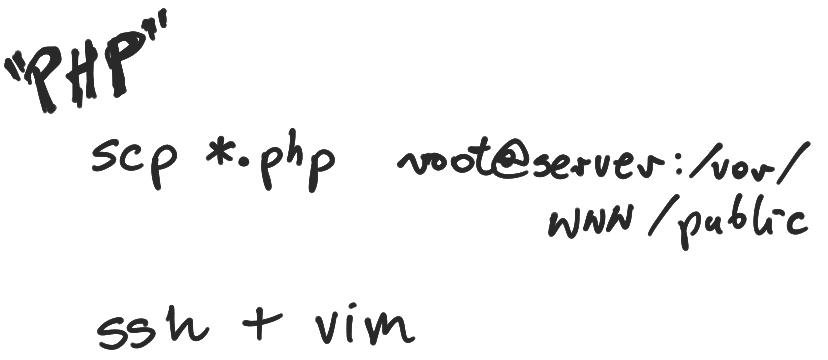 "PHP"
scp *.php root@server:/var/
www/public
ssh + vim